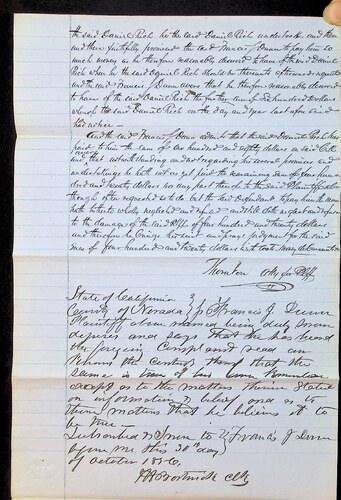 the said Daniel Rich he the said Daniel Rich undertook and then
and there faithfully promised the said Francis J Dunn to pay him so
much money as he therefore reasonably deserved to have of the said Daniel
Rich when he the said Daniel Rich should be thereunto afterwards requested
and the said Francis J Dunn avers that he therefore reasonably deserved
to have of the said Daniel Rich the further sum of Six hundred dollars
whereof the said Daniel Rich on the day and year last aforesaid
had notice —
And the said Francis J Dunn admits that the said Daniel Rich has
paid to him the sum of one hundred and eighty dollars on said
and that notwithstanding and not regarding his several promises and
undertakings he hath not as yet paid the remaining sum of four hun
dred and twenty dollars nor any part thereof to the said Plaintiff
though often requested so to do but the said Defendant to pay him the same
hath hitherto wholly neglected and refused and still doth neglect and refuse
to the damage of the said Plff of four hundred and twenty dollars
and therefore he brings his suit and prays judgment for the said
sum of four hundred and twenty dollars with costs
Atty for Plff
State of California
County of Nevada } Francis J. Dunn
Plaintiff above named being duly sworn
deposes and says that he has heard
the foregoing Complaint read and
knows the contents thereof that the
same is true of his own knowledge
except as to the matters therein stated
on information & belief and as to
these matters that he believes it to
be true —
Subscribed & Sworn to } Francis J Dunn
before me this 30th day
of October 1856.
Clk